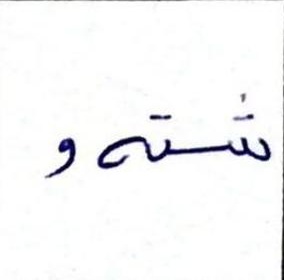 شسته و